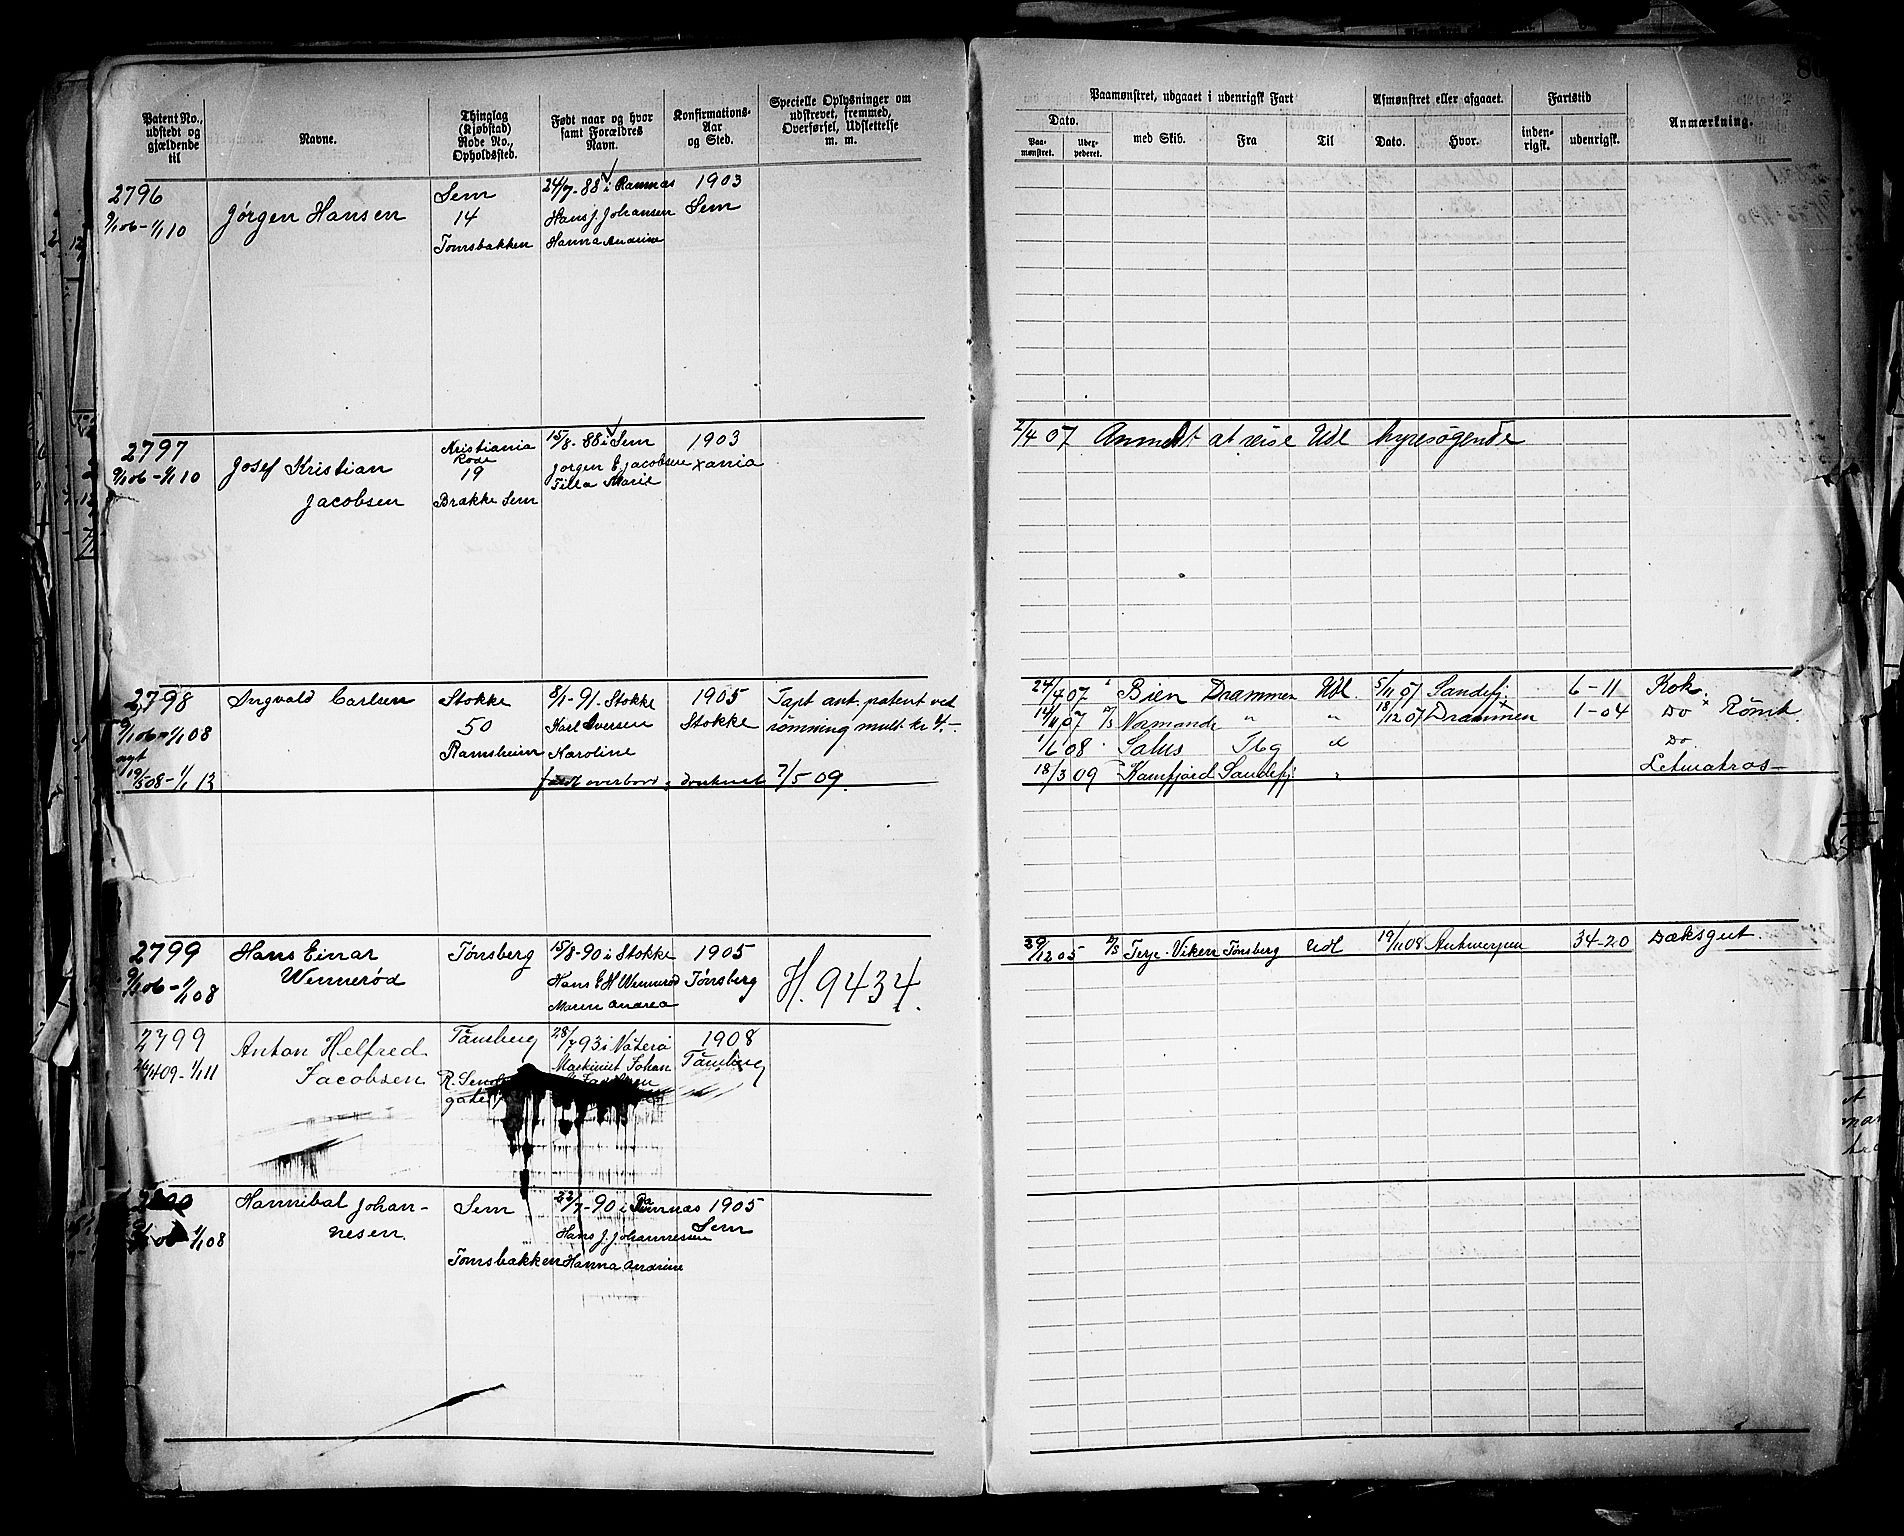 Patent No., udstedt og gjældende til
Navne.
Thinglag (Kjøbstad) Rode No., Opholdssted.
Født naar og hvor samt Forældres Navn.
Konfirmations-Aar og Sted.
Specielle Oplysninger om udstrevet, fremmed, Overførsel, Udslettelse m. m.
Paamønstret, udgaaet i udenrigsk Fart
Dato.
Paa-mønstret.
med Skib.
Fra
Til
Afmønstret eller afgaaet.
Dato.
Hvor.
Fartstid
inden-rigsk.
udenrigsk.
Anmærkning.
2796
9/1 06 - 1/1 10
Jørgen Hansen
Sem
14
Tomsbakken
24/7 - 88 i Ramnæs
Hans J. Johansen
Hanna Andrine
1903
Sem
2797
9/1 06 - 1/1 10
Josef Kristian
Jacobsen
Kristiania
Rode
19
Brakke Sem
15/8 - 88 i Sem
Jørgen E. Jacobsen
Tilla Marie
1903
Xania
2/4 07 Anmeldt at reise Udl hyresøgende
2798
9/1 06 - 1/1 08
nyt
19/5 08 - 1/1 13
Ingvald Carlsen
Stokke
50
Ramsheim
8/1 - 91. Stokke
Karl Iversen
Karoline
1905
Stokke
Tapt ant. patent ved
rømning mult kr 4.-
faldt overbord & druknet 7/5 09.
24/4 07 Bien Drammen Udl 5/11 07 Sandefj. 6-11 Kok.
14/11 07 Normandie " " 18/12 07 Drammen 1-04 Do Rømt.
1/6 08 Salus Tbg Do
18/3 09 Kamfjord Sandefj. " Letmatros
2799
9/1 06 - 1/1 08
Hans Einar
Wennerød
Tønsberg
15/8 - 90 i Stokke
Hans E H Wennerød
Maren Andrea
1905
Tønsberg
H. 9434.
29/12 05 D/S Terje Viken Tønsberg Udl 19/11 08 Antwerpen 34-20 Dæksgut.
2799
1/1 11
Anton Helfred
Jacobsen
Tønsberg
28/7 93 i Nøterø
Maskinist Johan
1908
Tønsberg
2800
1/1 08
Hannibal Johan-
nesen.
Sem
Tomsbakken
22/7 - 90 i Ramnæs
Hans J. Johannessen
Hanna Andrine
1905
Sem